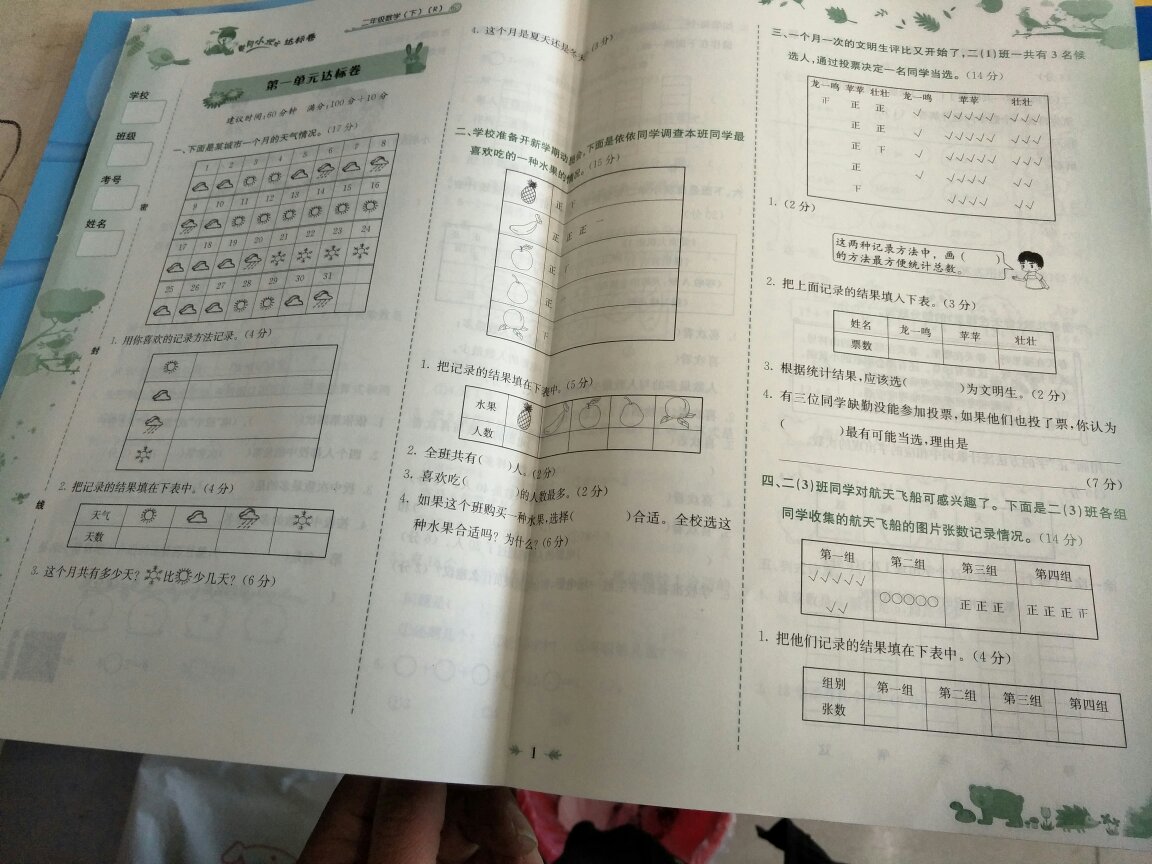 二年级数学(下)(R)
达标卷
第一单元达标卷
建议时间:60分钟 满分:100分+10分
学校
班级
考号
姓名
密
封
线
一、下面是某城市一个月的天气情况。(17分)
1 2 3 4 5 6 7 8
9 10 11 12 13 14 15 16
17 18 19 20 21 22 23 24
25 26 27 28 29 30 31
1. 用你喜欢的记录方法记录。(4分)
2. 把记录的结果填在下表中。(4分)
天气
天数
3. 这个月共有多少天? 比 少几天?(6分)
4. 这个月是夏天还是冬天 (3分)
二、学校准备开新学期 下面是依依同学调查本班同学最
喜欢吃的一种水果的情况。(15分)
正
正 正 正
正
正
1. 把记录的结果填在下表中。(5分)
水果
人数
2. 全班共有( )人。(2分)
3. 喜欢吃( )的人数最多。(2分)
4. 如果这个班购买一种水果,选择( )合适。全校选这
种水果合适吗?为什么?(6分)
1
三、一个月一次的文明生评比又开始了,二(1)班一共有3名候
选人,通过投票决定一名同学当选。(14分)
龙一鸣 苹苹 壮壮 龙一鸣 苹苹 壮壮
正 正 正 √ √√√√√ √√√
正 正 √ √√√√√ √√√
正 下 √ √√√√√ √√√
正 √ √√√√√ √√
下 √√√ √√
1. (2分)
这两种记录方法中,画( )
的方法最方便统计总数。
2. 把上面记录的结果填入下表。(3分)
姓名 龙一鸣 苹苹 壮壮
票数
3. 根据统计结果,应该选( )为文明生。(2分)
4. 有三位同学缺勤没能参加投票,如果他们也投了票,你认为
( )最有可能当选,理由是
(7分)
四、二(3)班同学对航天飞船可感兴趣了。下面是二(3)班各组
同学收集的航天飞船的图片张数记录情况。(14分)
第一组 第二组 第三组 第四组
√√√√√ ○○○○○ 正正正 正正正正
√√
1. 把他们记录的结果填在下表中。(4分)
组别 第一组 第二组 第三组 第四组
张数